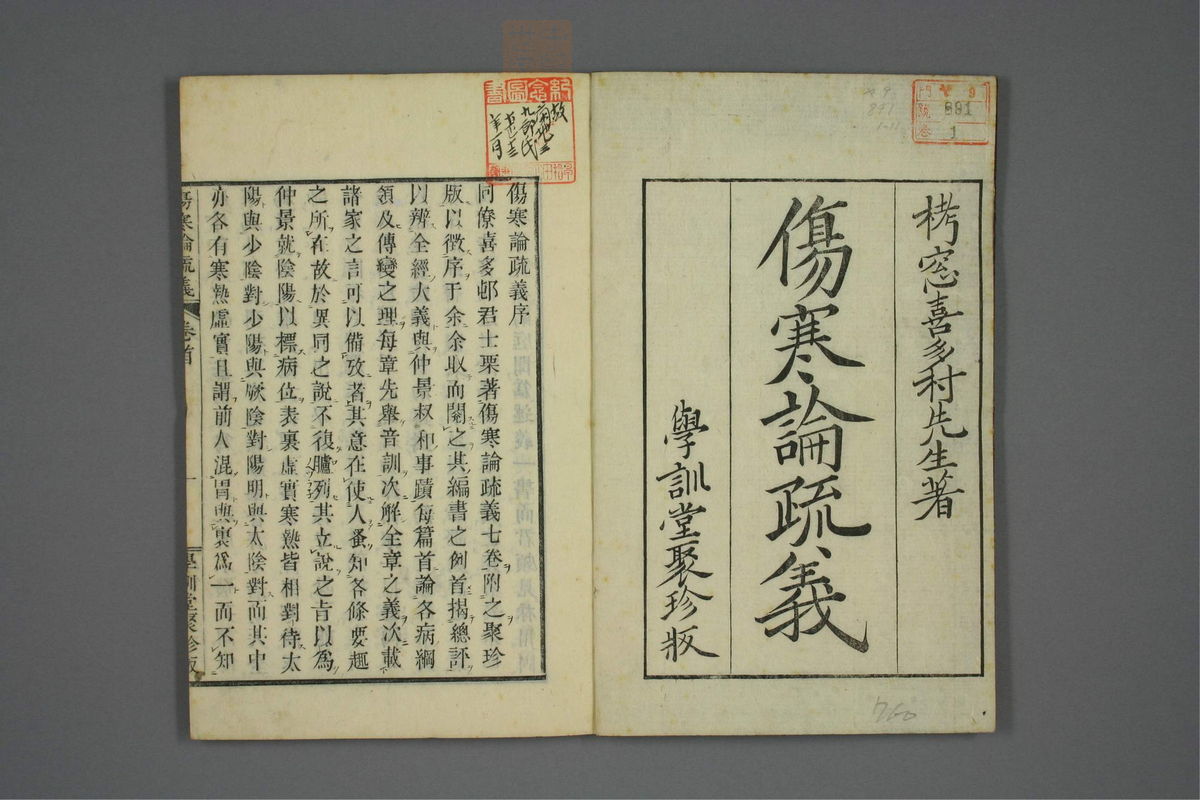 栲窓喜多村先生著
傷寒論疏義
學訓堂聚珍版
門 9
號 891
卷 1
760
紀念圖書
故
九郎氏
傷寒論疏義序
同僚喜多邨君士栗著傷寒論疏義七卷附之聚珍
版以徵序于余余取而閱之其編書之例首揭總評
以辨全經大義與仲景叔和事蹟每篇首論各病綱
領及傳變之理每章先舉音訓次解全章之義次載
諸家之言可以備攷者其意在使人蚤知各條要趣
之所在故於異同之說不復臚列其立說之旨以爲
仲景就陰陽以標病位表裏虛實寒熱皆相對待太
陽與少陰對少陽與厥陰對陽明與太陰對而其中
亦各有寒熱虛實且謂前人混胃與裏爲一而不知
傷寒論疏義 卷首 一 學訓堂聚珍版